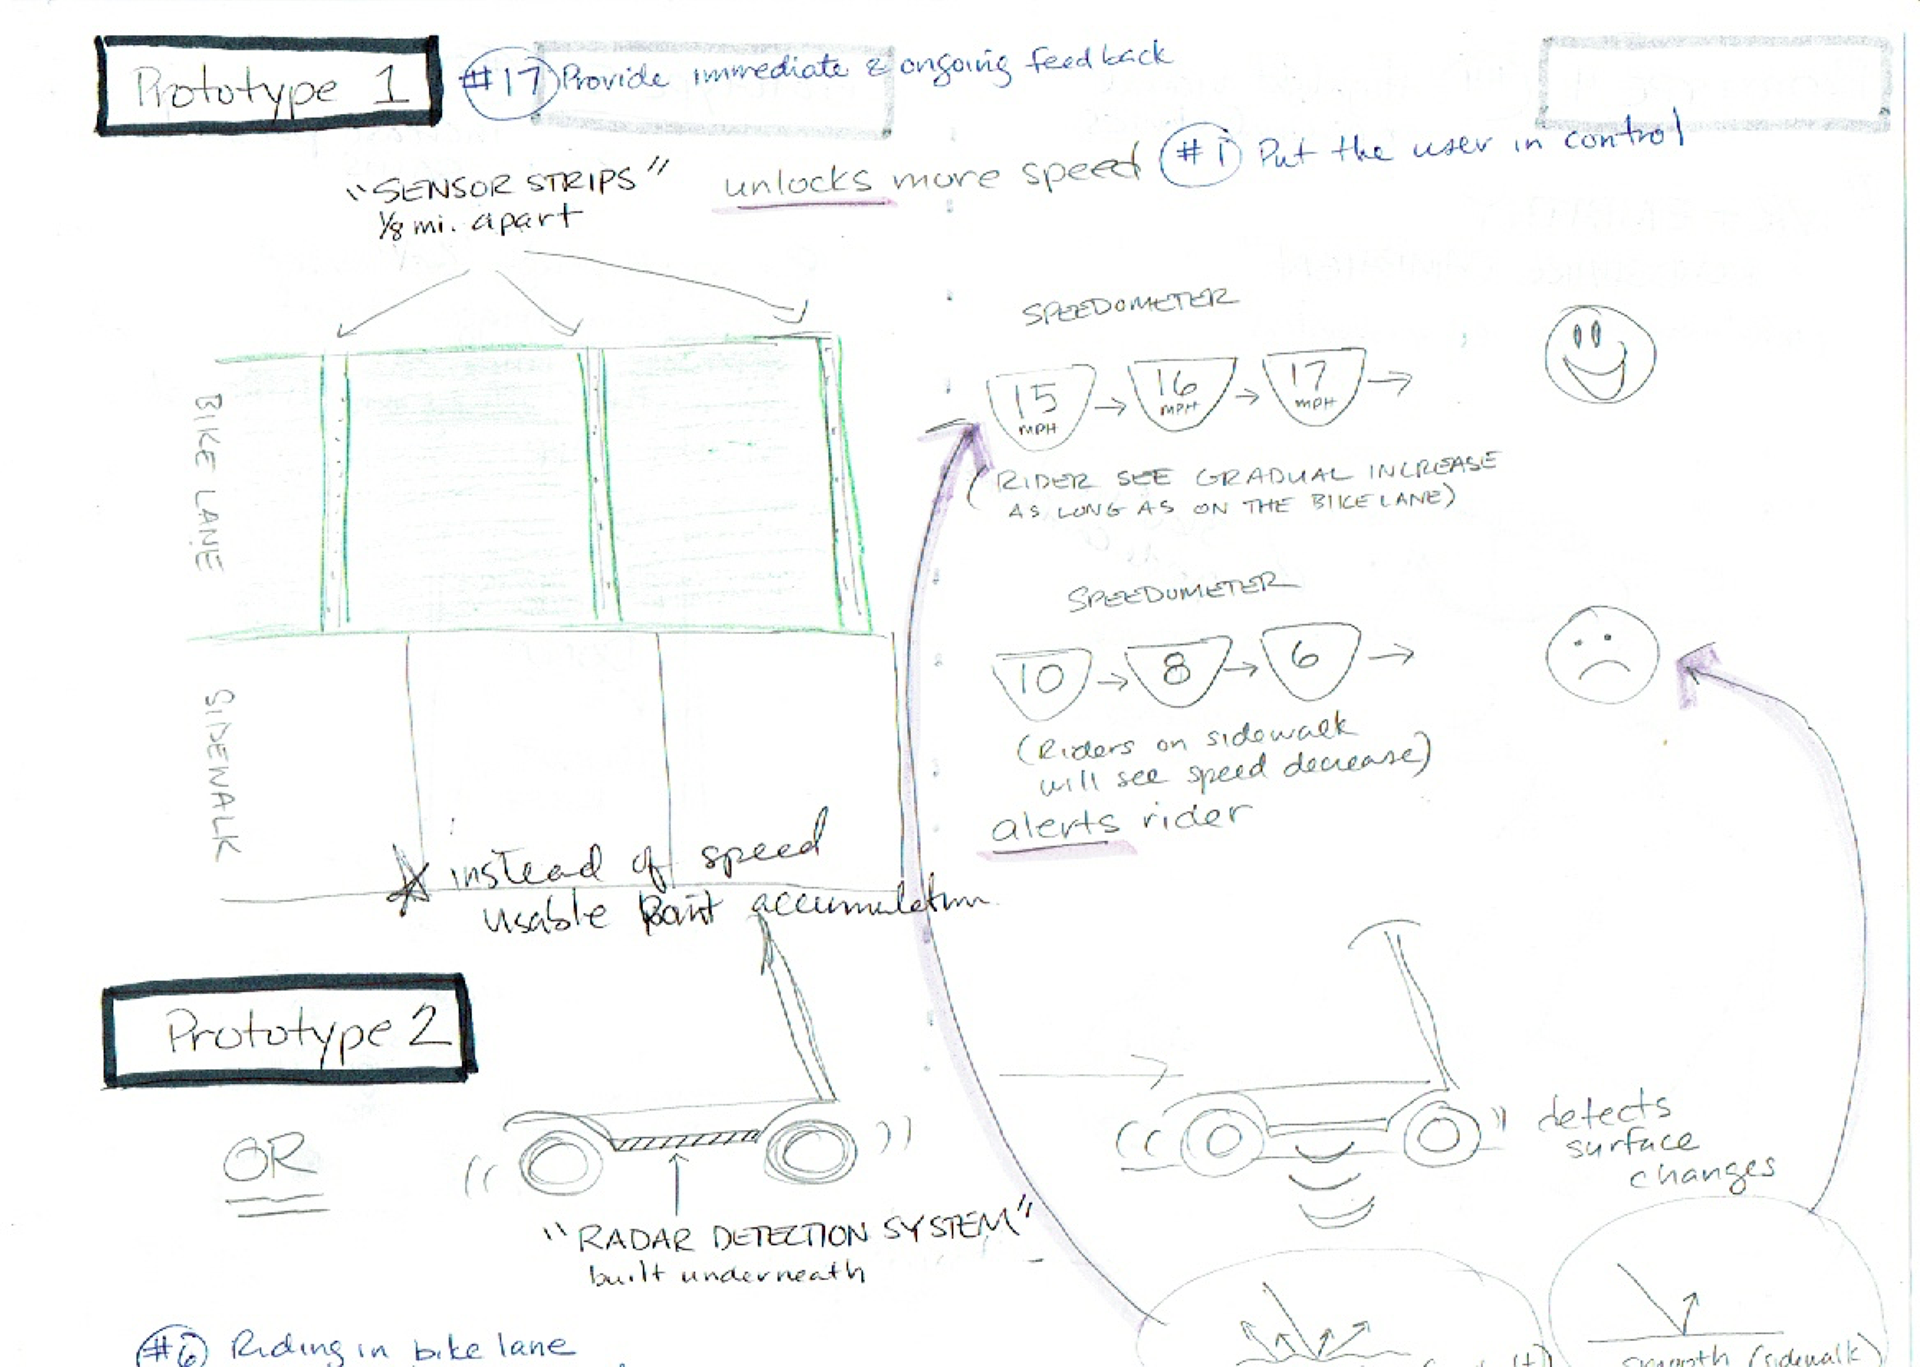 Prototype 1
#17 Provide immediate & ongoing feedback
"SENSOR STRIPS"
1/8 mi. apart
unlocks more speed
#1 Put the user in control
BIKE LANE
SIDEWALK
SPEEDOMETER
15 MPH → 16 MPH → 17 MPH →
(RIDER SEE GRADUAL INCREASE
AS LONG AS ON THE BIKE LANE)
SPEEDOMETER
10 → 8 → 6 →
(Riders on sidewalk
will see speed decrease)
alerts rider
instead of speed
usable point accumulation
Prototype 2
OR
"RADAR DETECTION SYSTEM"
built underneath
detects
surface
changes
#6 Riding in bike lane
smooth (sidewalk)